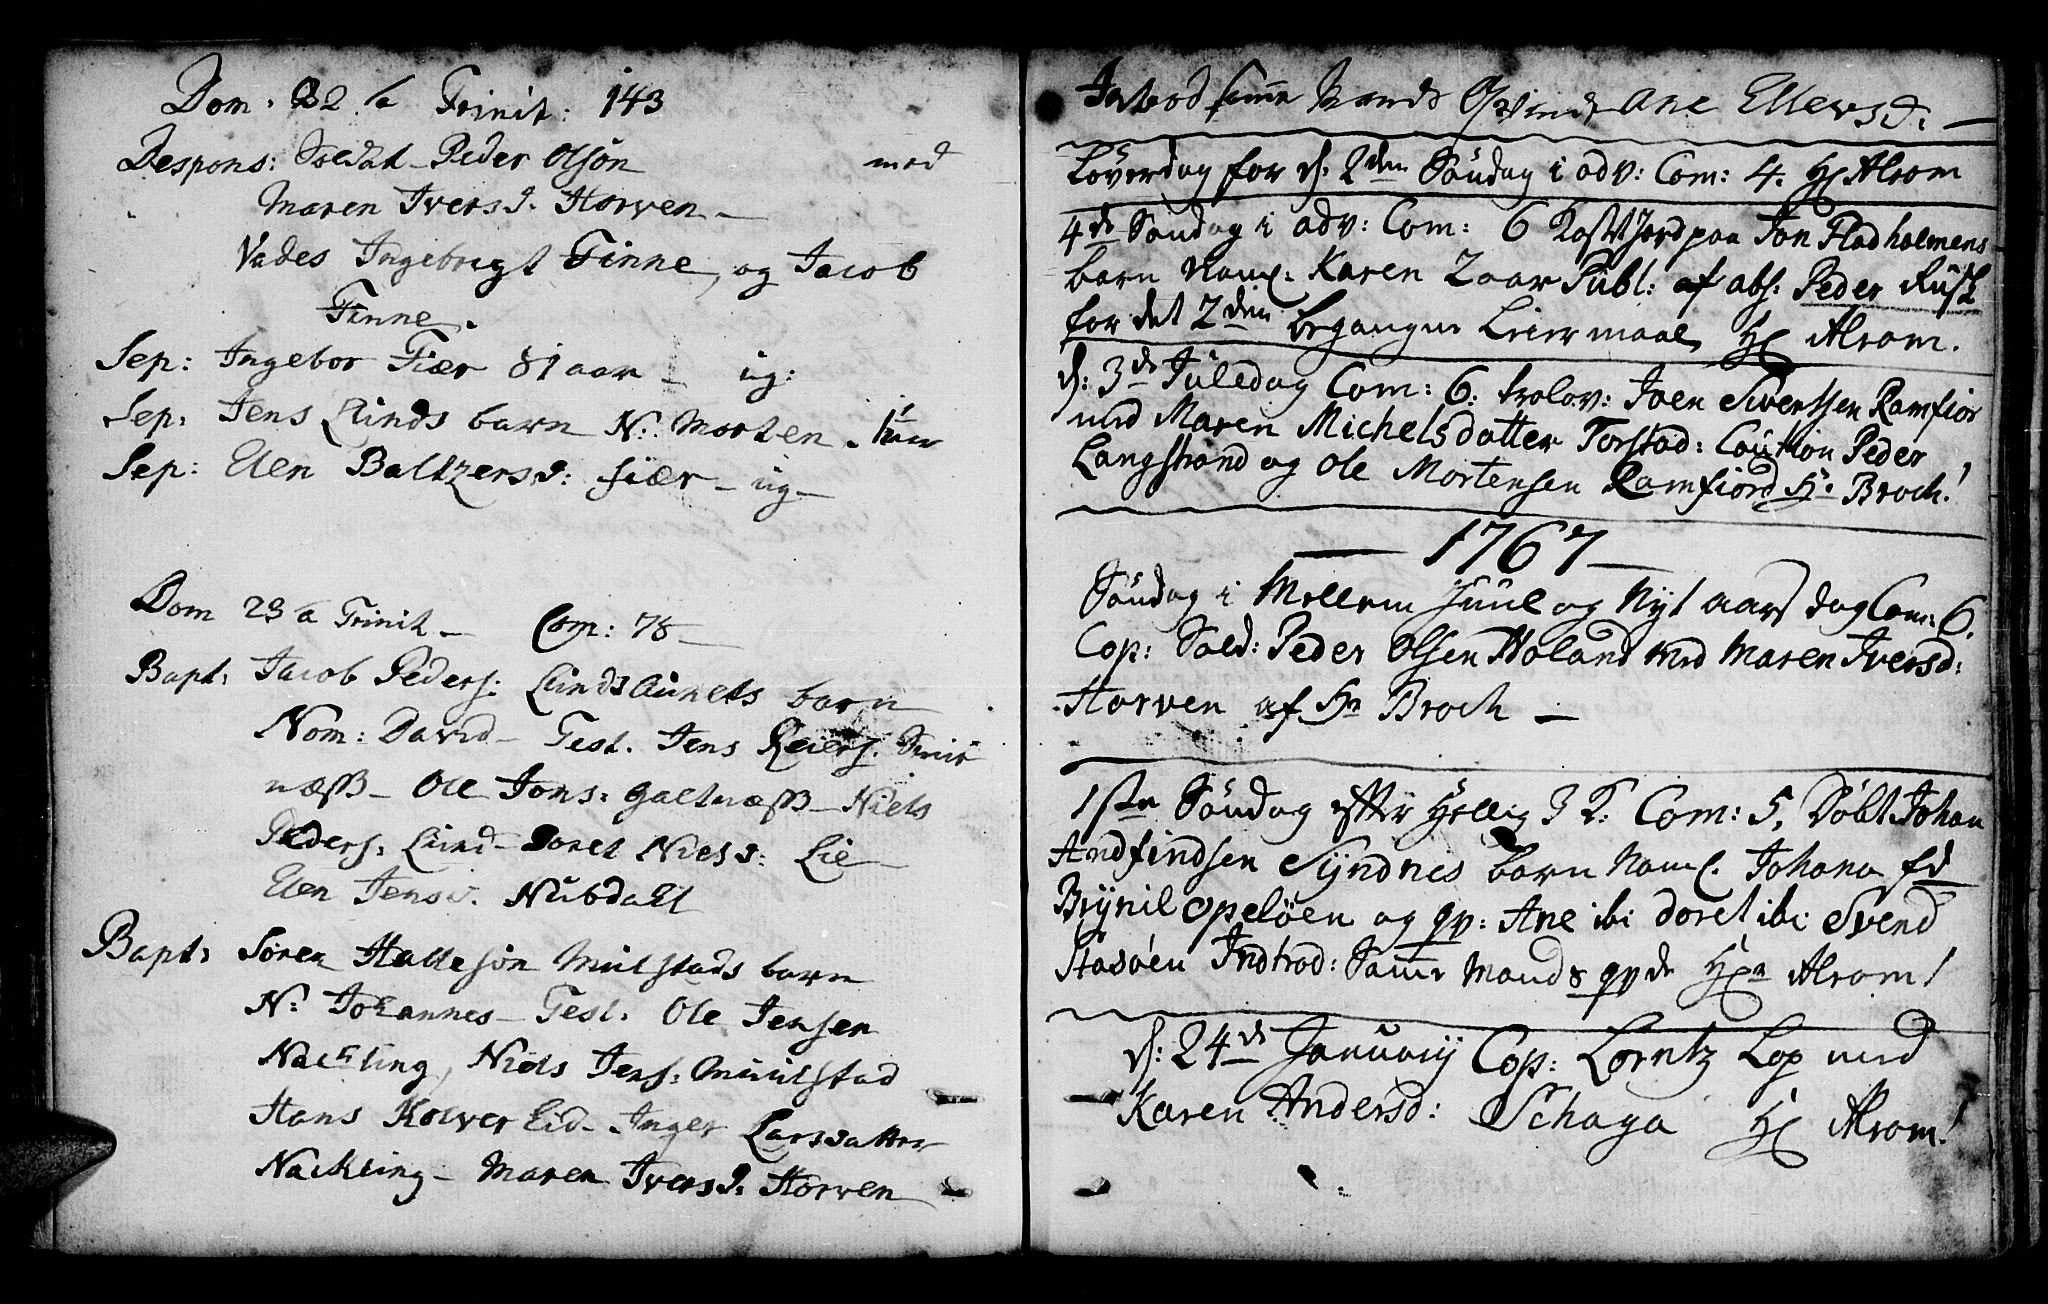 Dom. 22 a Trinit: 143
Despons: Soldat Peder Olsön med
Maren Iversd. Horven
Vades Ingebrigt Finne, og Jacob
Finne.
Sep: Ingebor Fiær 81 aar ug:
Sep: Jens Lunds barn N: Morten
Sep: Elen Baltzersd: fiær ug
Dom 23 a Trinit Com: 78
Bapt: Jacob Peders: barn
Nom: David Test. Jens Reiers.
næss Ole Jons: Galtnæss Niels
Peders. Lund Doret Nielsd: Lie
Elen Jensd. Nubdall
Bapt: Sören Hallesön Mulstads barn
N: Johannes Test. Ole Jensen
Nachling, Niels Jens: Mulstad
Hans Kolver Eid Inger Larsdatter
Nackling Maren Iversd. Horven
Introd samme Mands Qvinde Ane Ellersd.
Löverdag for d. 2den Söndag i adv: Com: 4. H Alrom
4de Söndag i adv: Com: 6 Kast Jord paa Jon Fladholmens
barn Naml. Karen 2 aar Publ: af abs: Peder Rusk
for det 2den begangne Leiermaal H Alrom.
d: 3de Juledag Com: 6: trolov: Joen Sivertsen Ramfior
med Maren Michelsdatter Torstad: Caution Peder
Langstrand og Ole Mortensen Ramfiord Hr Broch!
1767
Söndag i Mellem Juul og Nyt aars dag Com: 6.
Cop: Sold: Peder Olsen Holand med Maren Iversd:
Horven af Hr Broch
1ste Söndag efter Hellig 3 K. Com: 5, Döbt Johan
Andfindsen Syndnes barn Naml. Johana fd
Brynil Opelöen og qv: Ane ibi doret ibi Svend
Stasöen Indtrod: Samme Mands qvde Hr Alrom!
d: 24de January Cop: Lorntz Lop med
Karen Andersd: Schaga H Alrom!